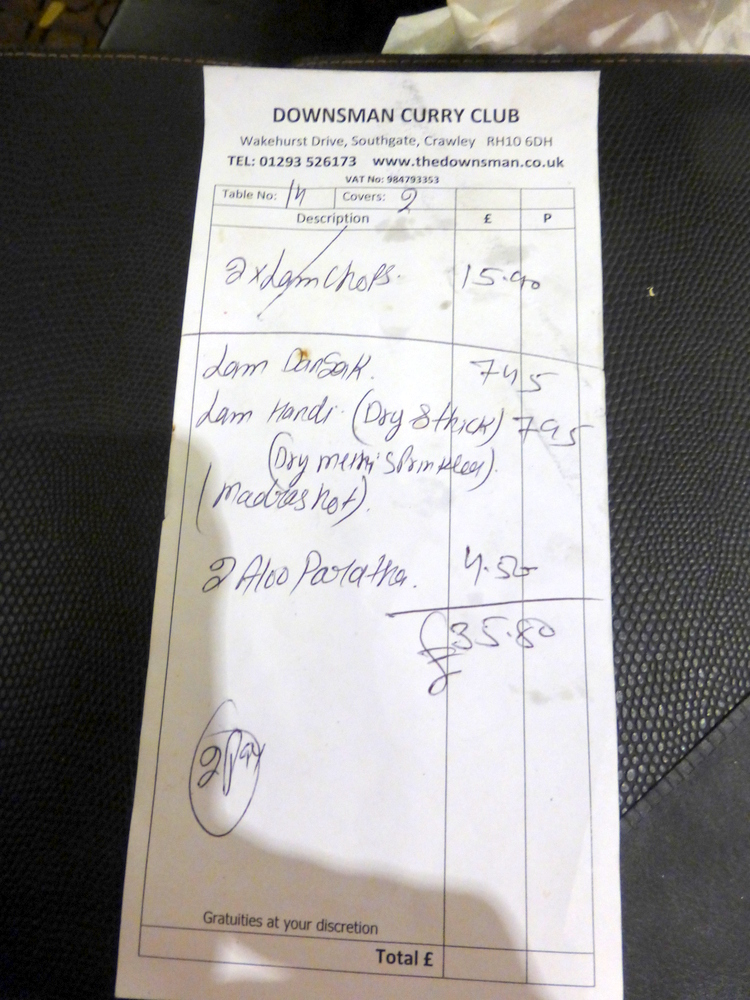 DOWNSMAN CURRY CLUB
Wakehurst Drive, Southgate, Crawley RH10 6DH
TEL: 01293 526173 www.thedownsman.co.uk
VAT No: 984793353
Table No: 14 Covers: 2
Description £ P
2 x Lam Chops. 15.90
Lam Dansak. 745
Lam Handi (Dry & thick) 795
(Dry methi sprinkled).
(Madras hot).
2 Aloo Paratha. 4.50
£35.80
Gratuities at your discretion
Total £